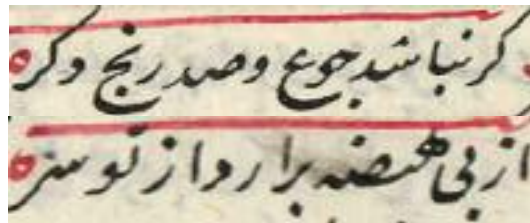 کر نباشد جوع و صد رنج دکر
از پی هیضه برارد از تو سر